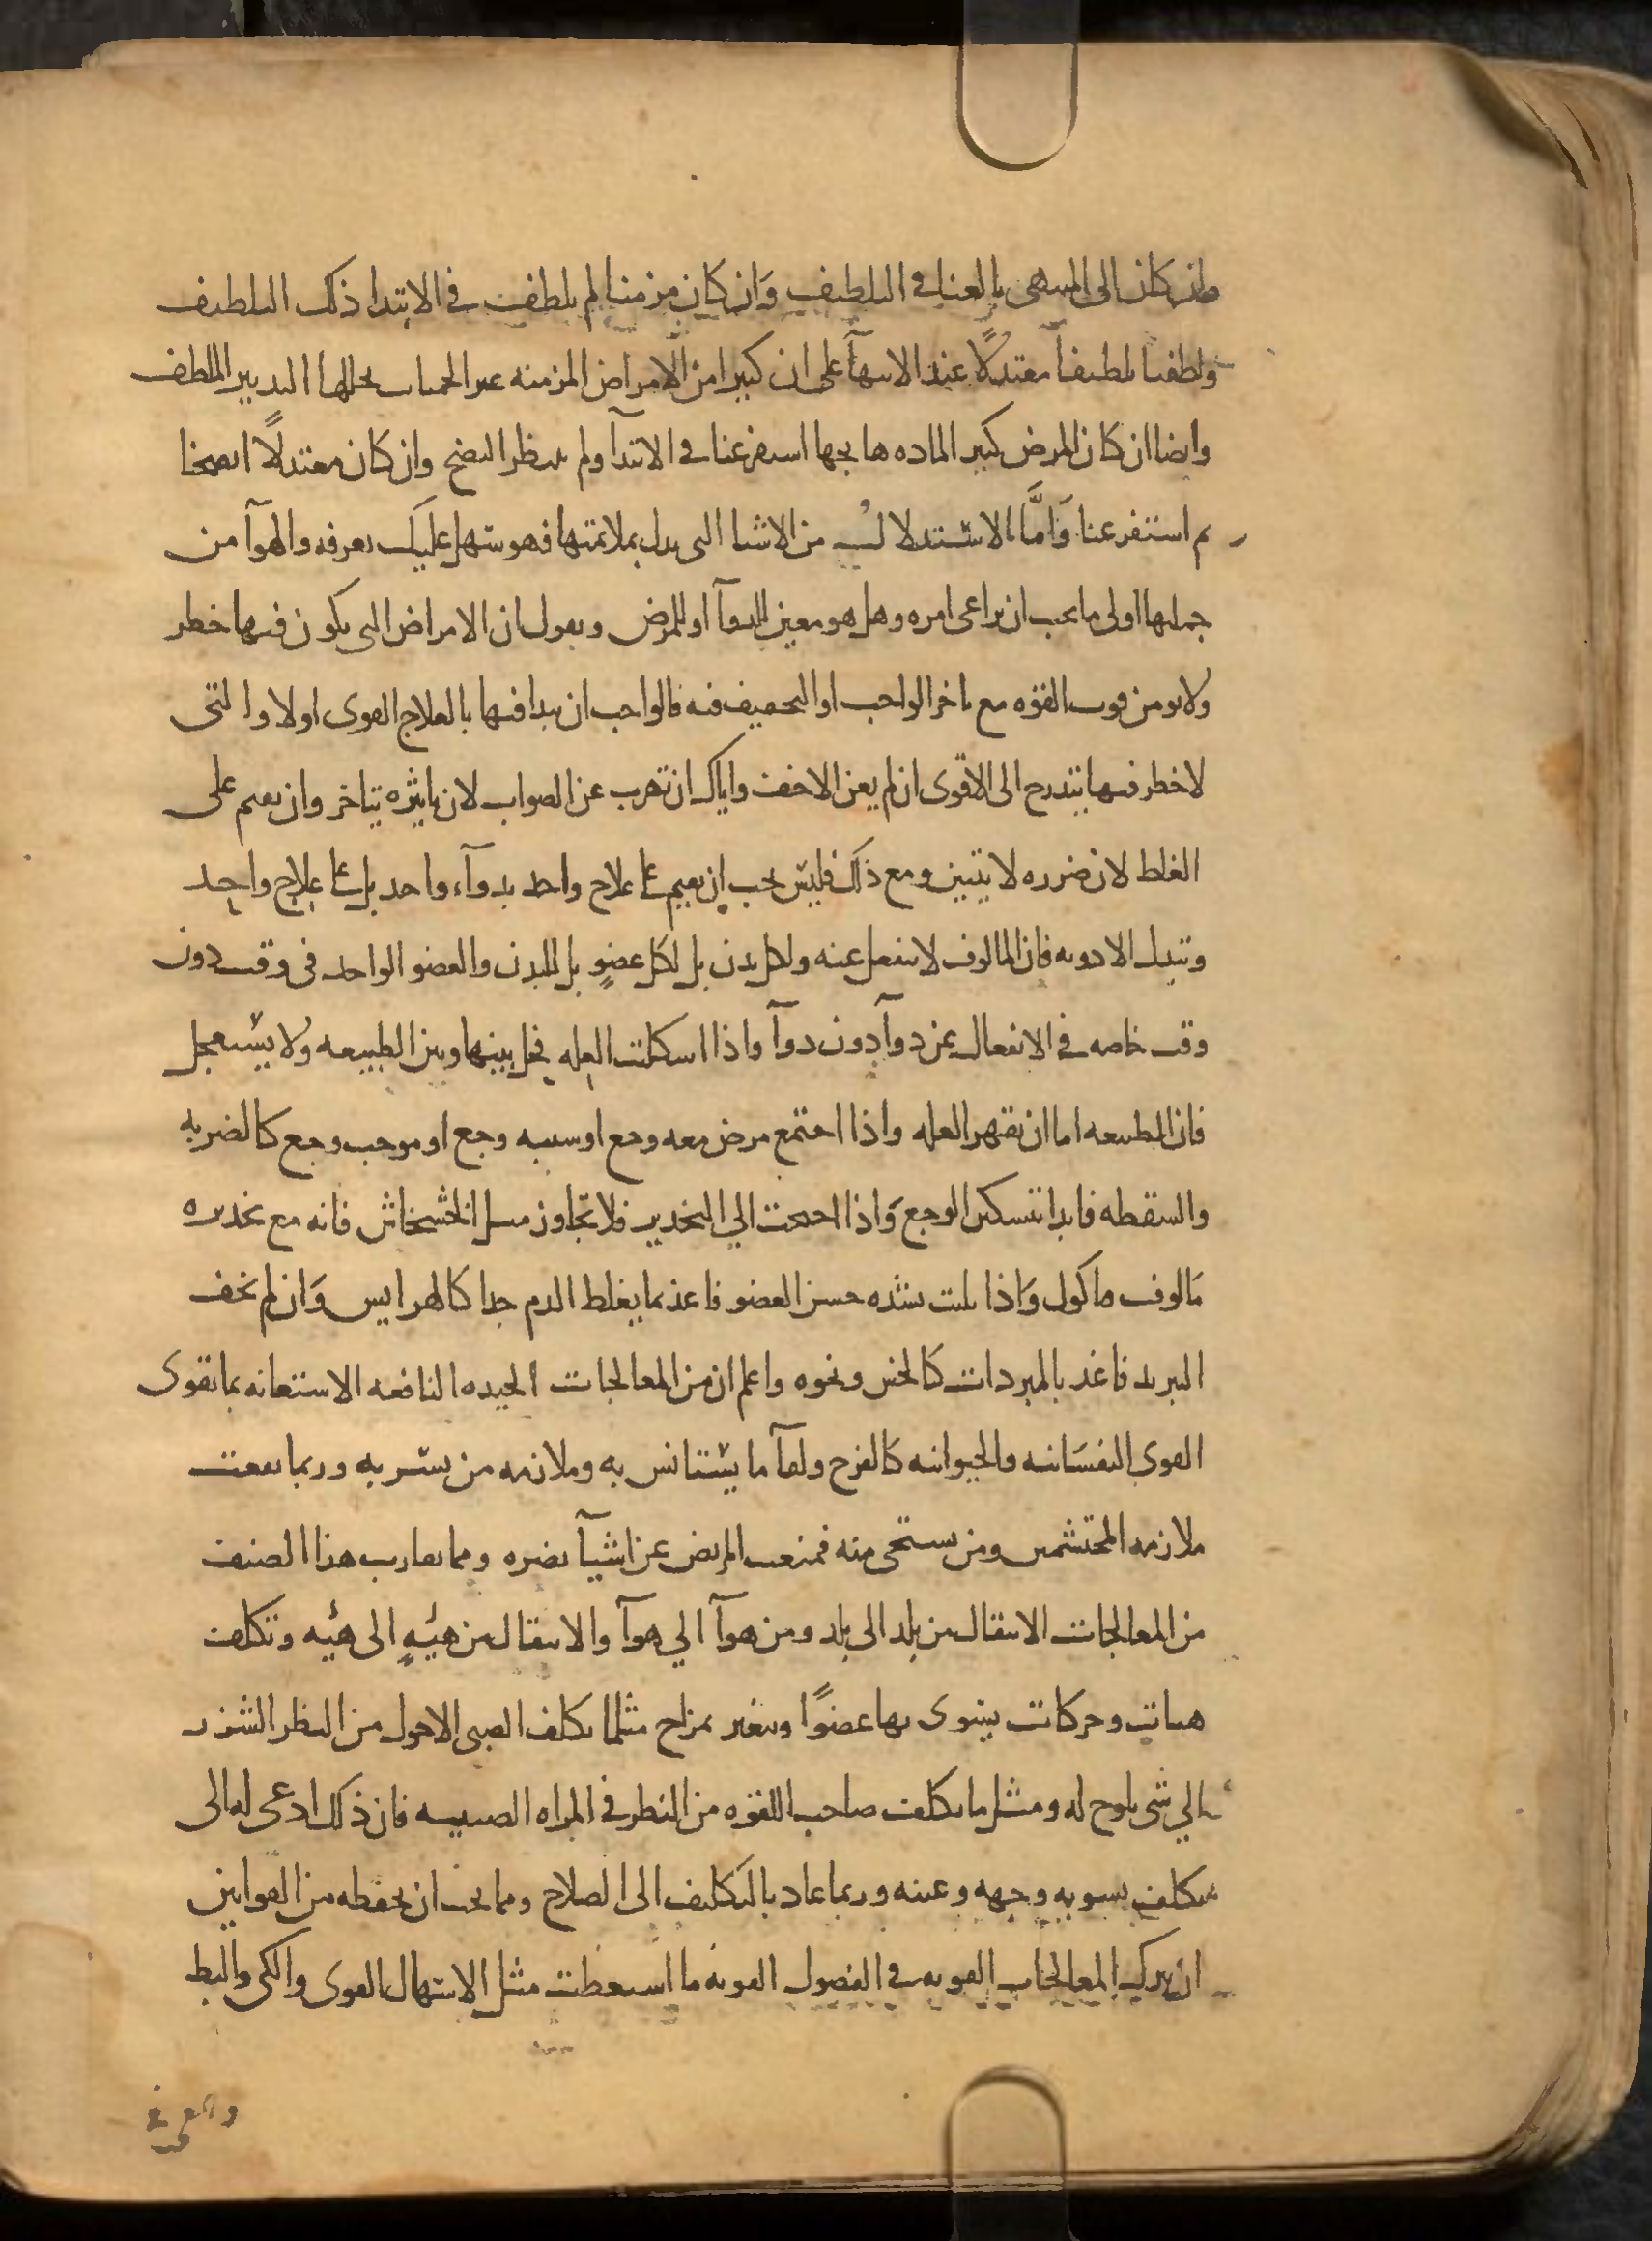 وان كان الى المنتهى بالغنا في التلطيف وَان كان مزمنا لم يلطف في الابتدا ذلك التلطيف
ولطفنا تلطيفاً معتدلًا عند الانتهآ على ان كثيرا من الامراض المزمنه غير الحميات يحللها التدبير الملطف
وايضا ان كان المرض كثير الماده هايجها استفرغنا في الابتدآ ولم ننتظر النضج وان كان معتدلًا انضجنا
ثم استفرغنا وَامَّا الاستدلال من الاشيا التى يدل بملائمتها فهو سهل عليك تعرفه والهوآ من
جملتها اولى ما يجب ان يراعى امره وهل هو معين للدوآ او للمرض ونقول ان الامراض التى يكون فيها خطر
ولا يومن فوت القوه مع تاخر الواجب او التخفيف فيه فالواجب ان يبدا فيها بالعلاج القوى اولا والتى
لا خطر فيها يتدرج الى الاقوى ان لم يغن الاخف واياك ان تهرب عن الصواب لان تاثيره يتاخر وان يقيم على
الغلط لان ضرره لا يتبين ومع ذلك فليس يجب ان يقيم على علاج واحد بدوآء واحد بل على علاج واحد
وتبدل الادويه فان المالوف لا ينفعل عنه ولكل بدن بل لكل عضوٍ بل للبدن والعضو الواحد فى وقت دون
وقت خاصه في الانفعال عن دوآ دون دوآ واذا اشكلت العله فخل بينها وبين الطبيعه ولا يستعجل
فان الطبيعه اما ان تقهر العله واذا اجتمع مرض معه وجع او سببه وجع او موجب وجع كالضربه
والسقطه فابدا بتسكين الوجع وَاذا احتجت الي التخدير فلا تجاوز مثل الخشخاش فانه مع تخديره
مَالوف ماكول وَاذا بليت بشده حس العضو فاغذ بما يغلظ الدم جدا كالهرايس وَان لم تخف
التبريد فاغذ بالمبردات كالخس ونحوه واعلم ان من المعالجات الجيده النافعه الاستعانه بما يقوى
القوى النفسَانيه والحيوانيه كالفرح ولقآ ما يستانس به وملازمه من يسر به وربما نفعت
ملازمه المحتشمين ومن يستحى منه فمنعت المريض عن اشيآ تضره ومما يقارب هذا الصنف
من المعالجات الانتقال من بلد الى بلد ومن هوآ الي هوآ والانتقال من هيئهٍ الى هيئه وتكلف
هيات وحركات يستوى بها عضوًا ويتغير بمزاج مثلما يكلف الصبى الاحول من النظر الشزر
الي شى يلوح له ومثل ما يكلف صاحب اللقوه من النظر في المراه الصينيه فان ذلك ادعى له الى
تكلف تسويه وجهه وعينه وربما عاد بالتكليف الى الصلاح ومما يجب ان تحفظه من القوانين
ان يترك المعالجات القويه في الفصول القويه ما استطعت مثل الاسهال القوى والكى والبط